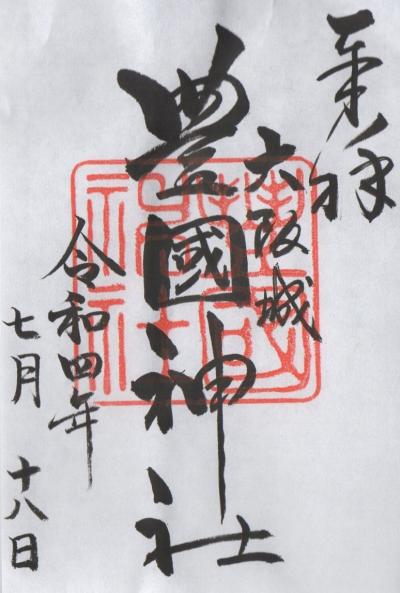 奉拝
大阪城
豊國神社
令和四年
七月 十八日